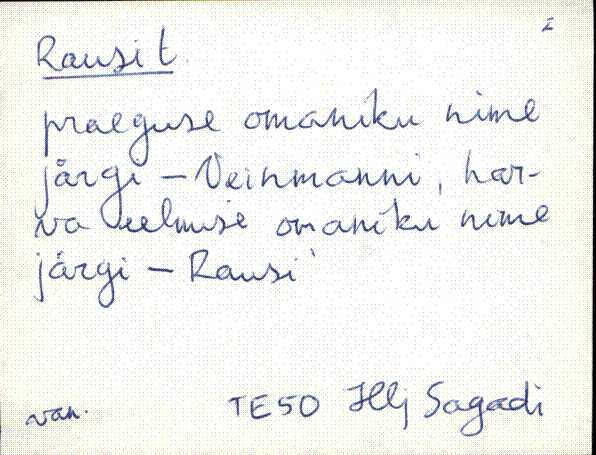 Rausi t.
praeguse omaniku nime
järgi – Veinmanni, har-
va eelmise omaniku nime
järgi – Rausi
van. TE50 Hlj Sagadi